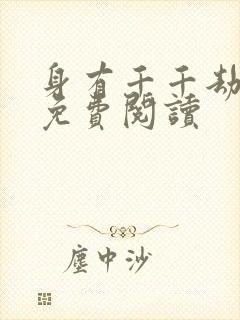 身有千千劫
免費閱讀
塵中沙